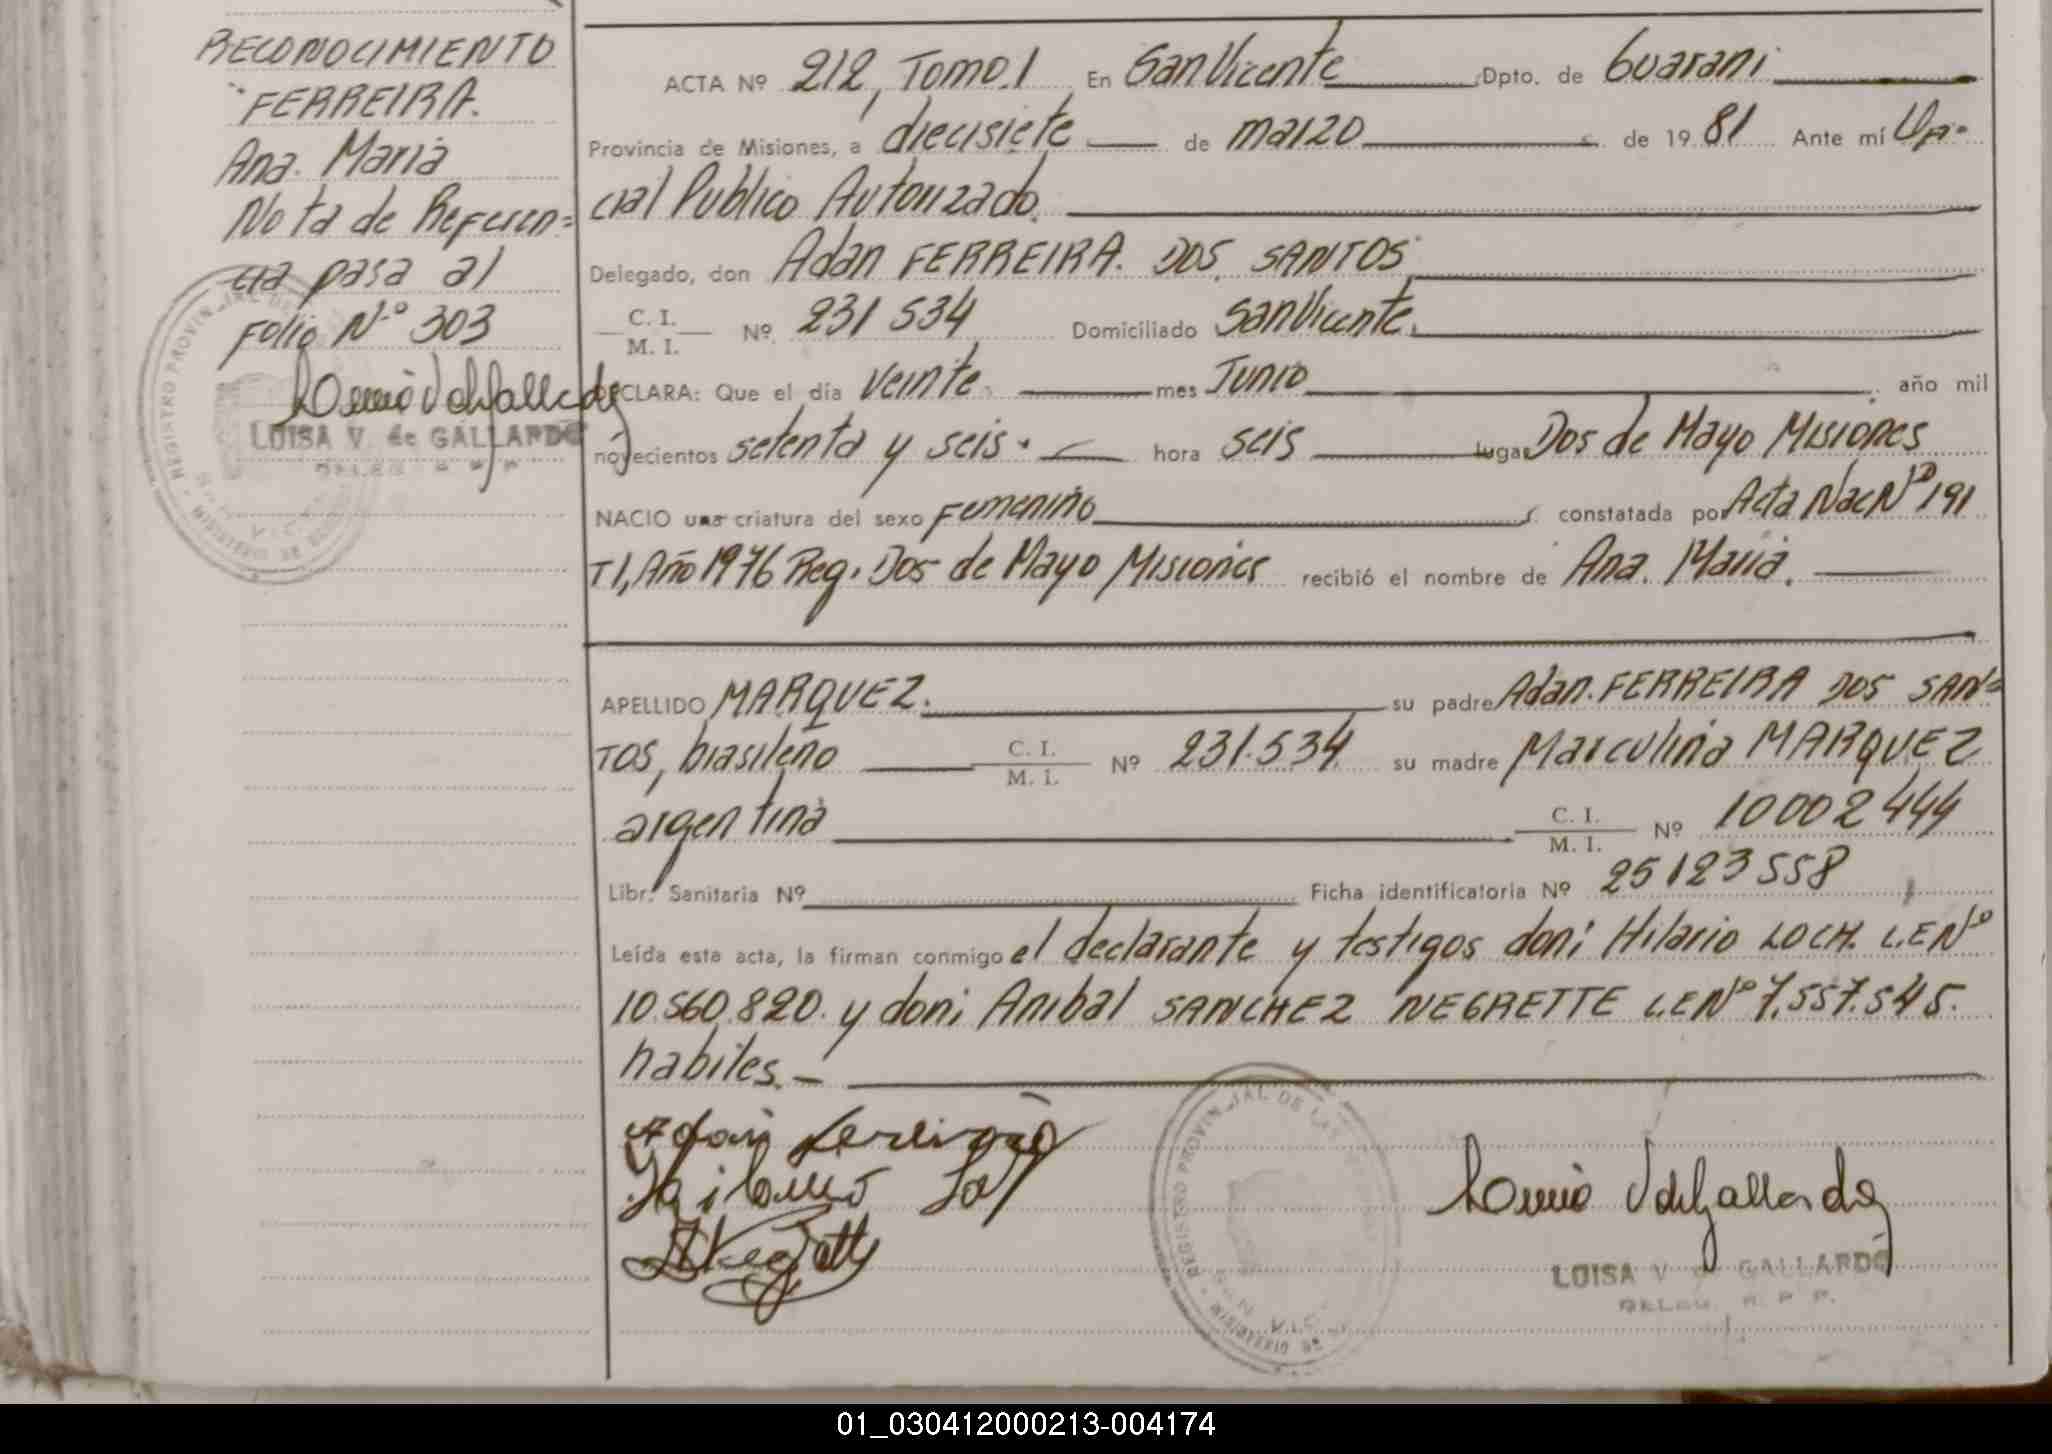 RECONOCIMIENTO
FERREIRA.
Ana. Maria
Nota de Referen=
cia pasa al
Folio N.º 303
LOISA V. de GALLARDO
ACTA Nº 212, Tomo.1 En San Vicente Dpto. de Guarani
Provincia de Misiones, a diecisiete de marzo de 1981 Ante mí Ofi-
cial Publico Autorizado.
Delegado, don Adan FERREIRA. DOS SANTOS
C. I.
M. I. Nº 231534 Domiciliado San Vicente.
DECLARA: Que el día veinte mes Junio año mil
novecientos setenta y seis. hora seis lugar Dos de Mayo Misiones
NACIO una criatura del sexo Femenino constatada por Acta Nac Nº 191
T1, Año 1976 Reg. Dos de Mayo Misiones recibió el nombre de Ana. Maria.
APELLIDO MARQUEZ. su padre Adan. FERREIRA DOS SAN=
TOS, brasileño C. I.
M. I. Nº 231.534 su madre Marculina MARQUEZ
argentina C. I.
M. I. Nº 10002444
Libr. Sanitaria Nº Ficha identificatoria Nº 25123558
Leída esta acta, la firman conmigo el declarante y testigos don: Hilario LOCH. L.E Nº
10.560.820. y don: Anibal SANCHEZ NEGRETTE L.E Nº 7.557.545.
habiles.-
REGISTRO PROVINCIAL DE LAS
LOISA V de GALLARDO
DELEG. R. P. P.
01_030412000213-004174